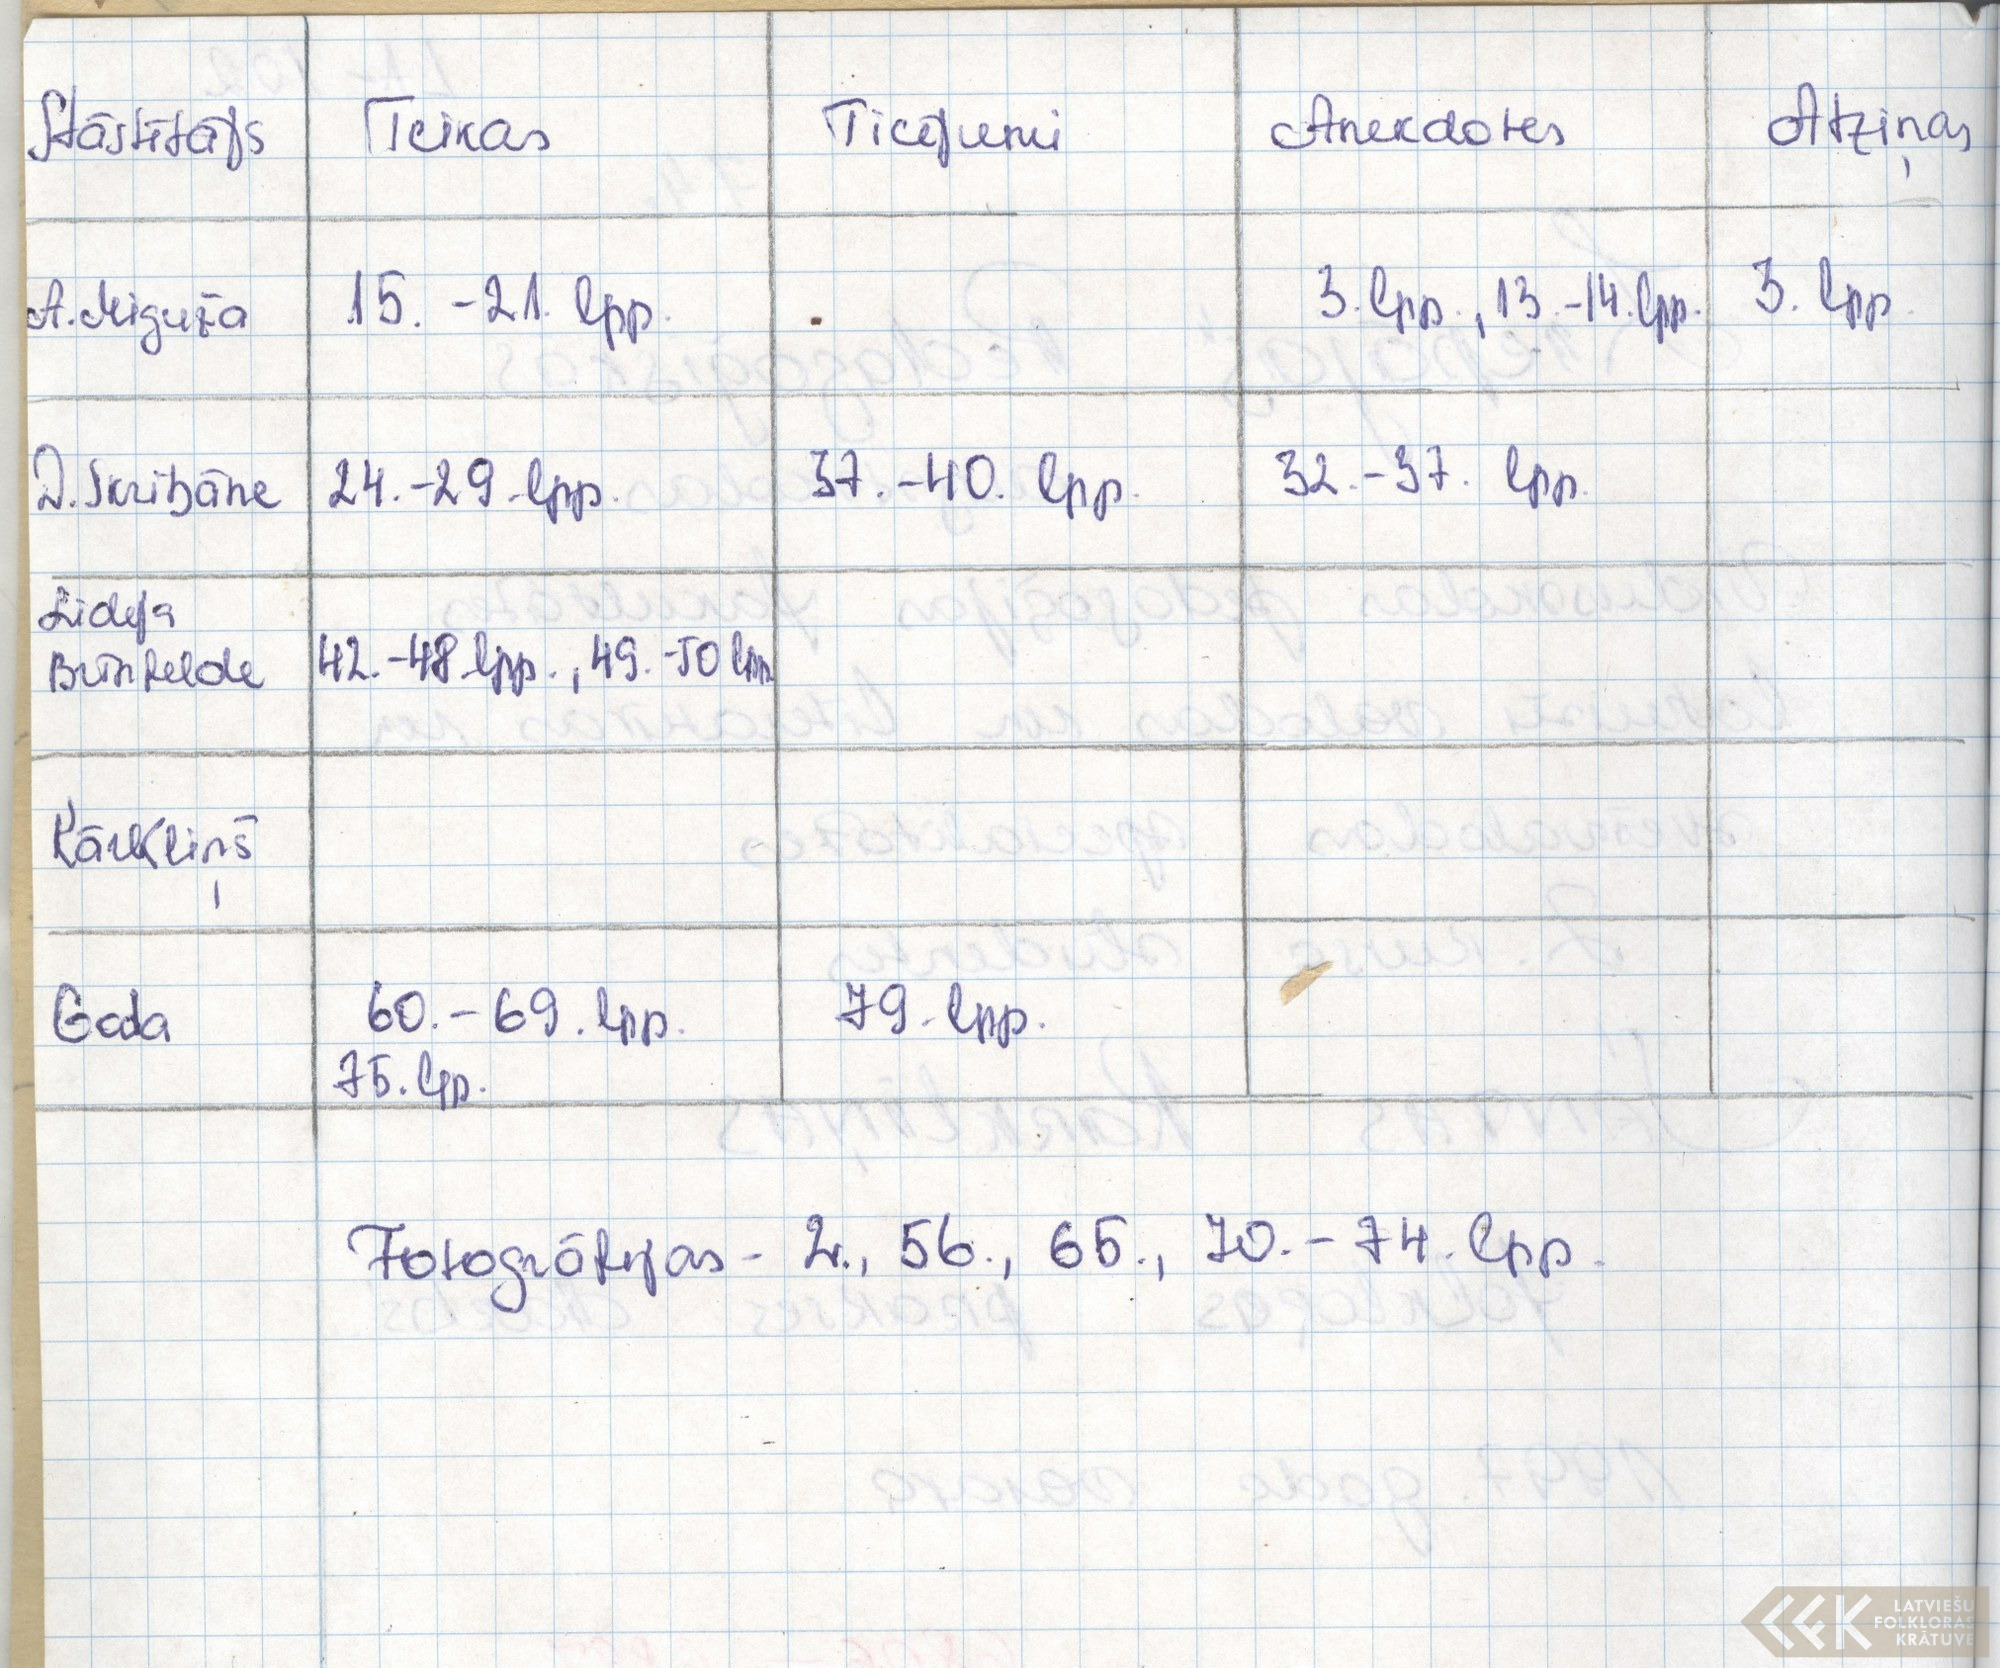 Stāstītājs Teikas Ticējumi Anekdotes Atziņas
A. Miguža 15.-21. lpp. 3. lpp., 13.-14. lpp. 3. lpp.
D. Skribāne 24.-29. lpp. 37.-40. lpp. 32.-37. lpp.
Lidija
Brinfelde 42.-48. lpp., 49.-50 lpp
Kārkliņš
Goda 60.-69. lpp. 79. lpp.
75. lpp.
Fotogrāfijas - 2., 56., 65., 70.-74. lpp.
LATVIEŠU
FOLKLORAS
KRĀTUVE